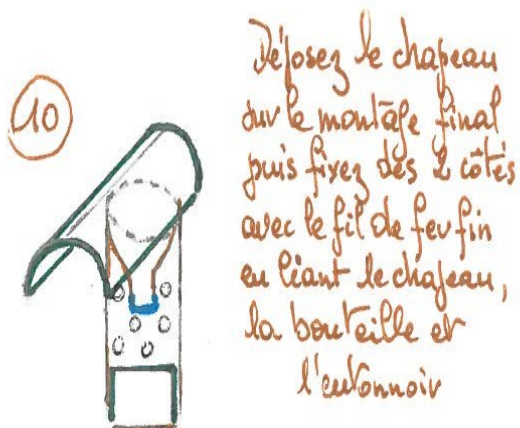 10
Déposez le chapeau
sur le montage final
puis fixez des 2 côtés
avec le fil de fer fin
en liant le chapeau,
la bouteille et
l'entonnoir